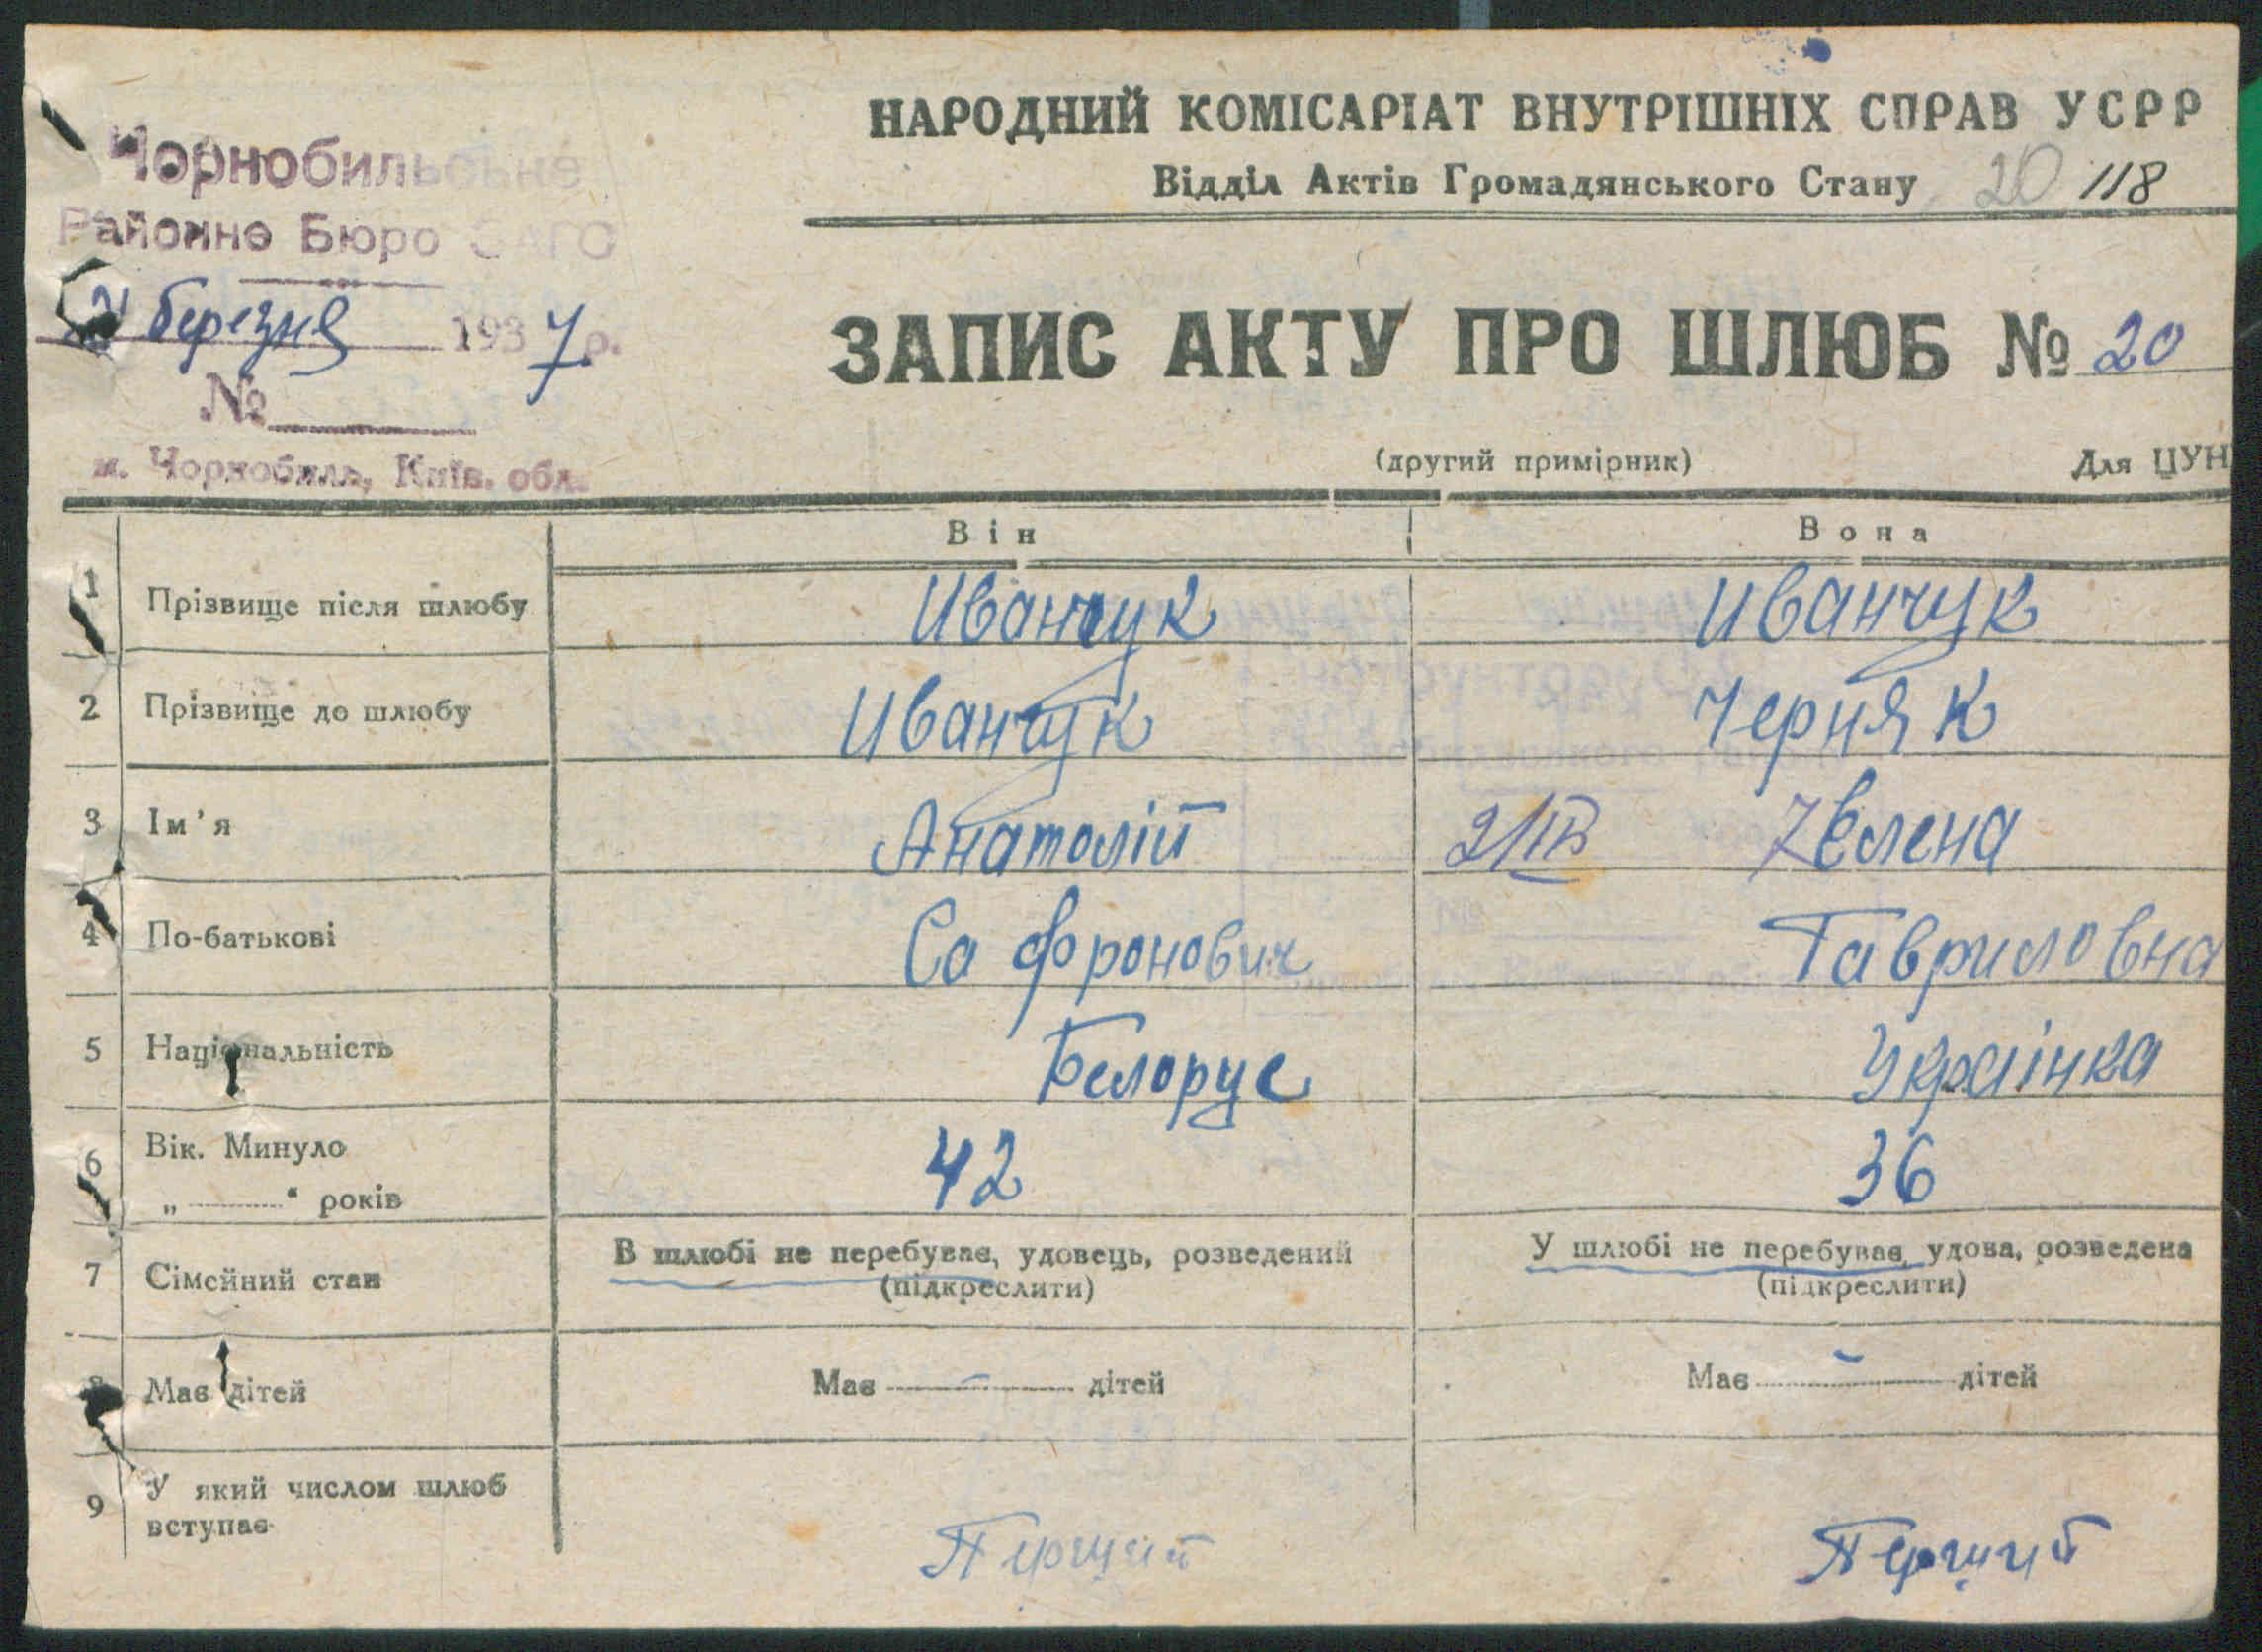 НАРОДНИЙ КОМІСАРІАТ ВНУТРІШНІХ СПРАВ УСРР
Відділ Актів Громадянського Стану 20 118
Чорнобильське
Районне Бюро ЗАГС
березня 1937 р.
№
м. Чорнобиль, Київ. обл.
ЗАПИС АКТУ ПРО ШЛЮБ № 20
(другий примірник) Для ЦУН
Він Вона
1 Прізвище після шлюбу Иванчук Иванчук
2 Прізвище до шлюбу Иванчук Черняк
3 Ім'я Анатолій Елена
4 По-батькові Сафронович Гавриловна
5 Національність Белорус Українка
6 Вік. Минуло 42 36
„ “ років
7 Сімейний стан В шлюбі не перебуває, удовець, розведений У шлюбі не перебуває, удова, розведена
(підкреслити) (підкреслити)
8 Має дітей Має - дітей Має - дітей
9 У який числом шлюб
вступає Перший Перший